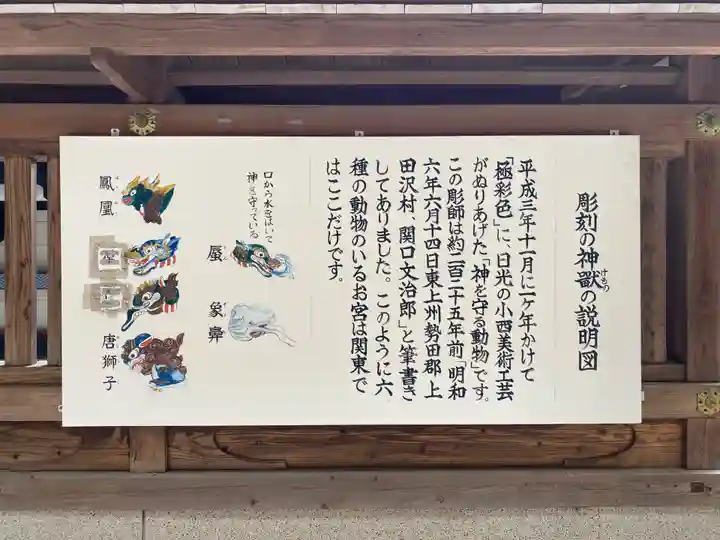 彫刻の神獣の説明図
けもの
平成三年十一月に一ヶ年かけて
「極彩色」に、日光の小西美術工芸
がぬりあげた「神を守る動物」です。
この彫師は約二百二十五年前「明和
六年六月十四日東上州勢田郡上
田沢村、関口文治郎」と筆書き
してありました。このように六
種の動物のいるお宮は関東で
はここだけです。
口から水をはいて
神を守っている
蜃
象鼻
鳳凰
唐獅子